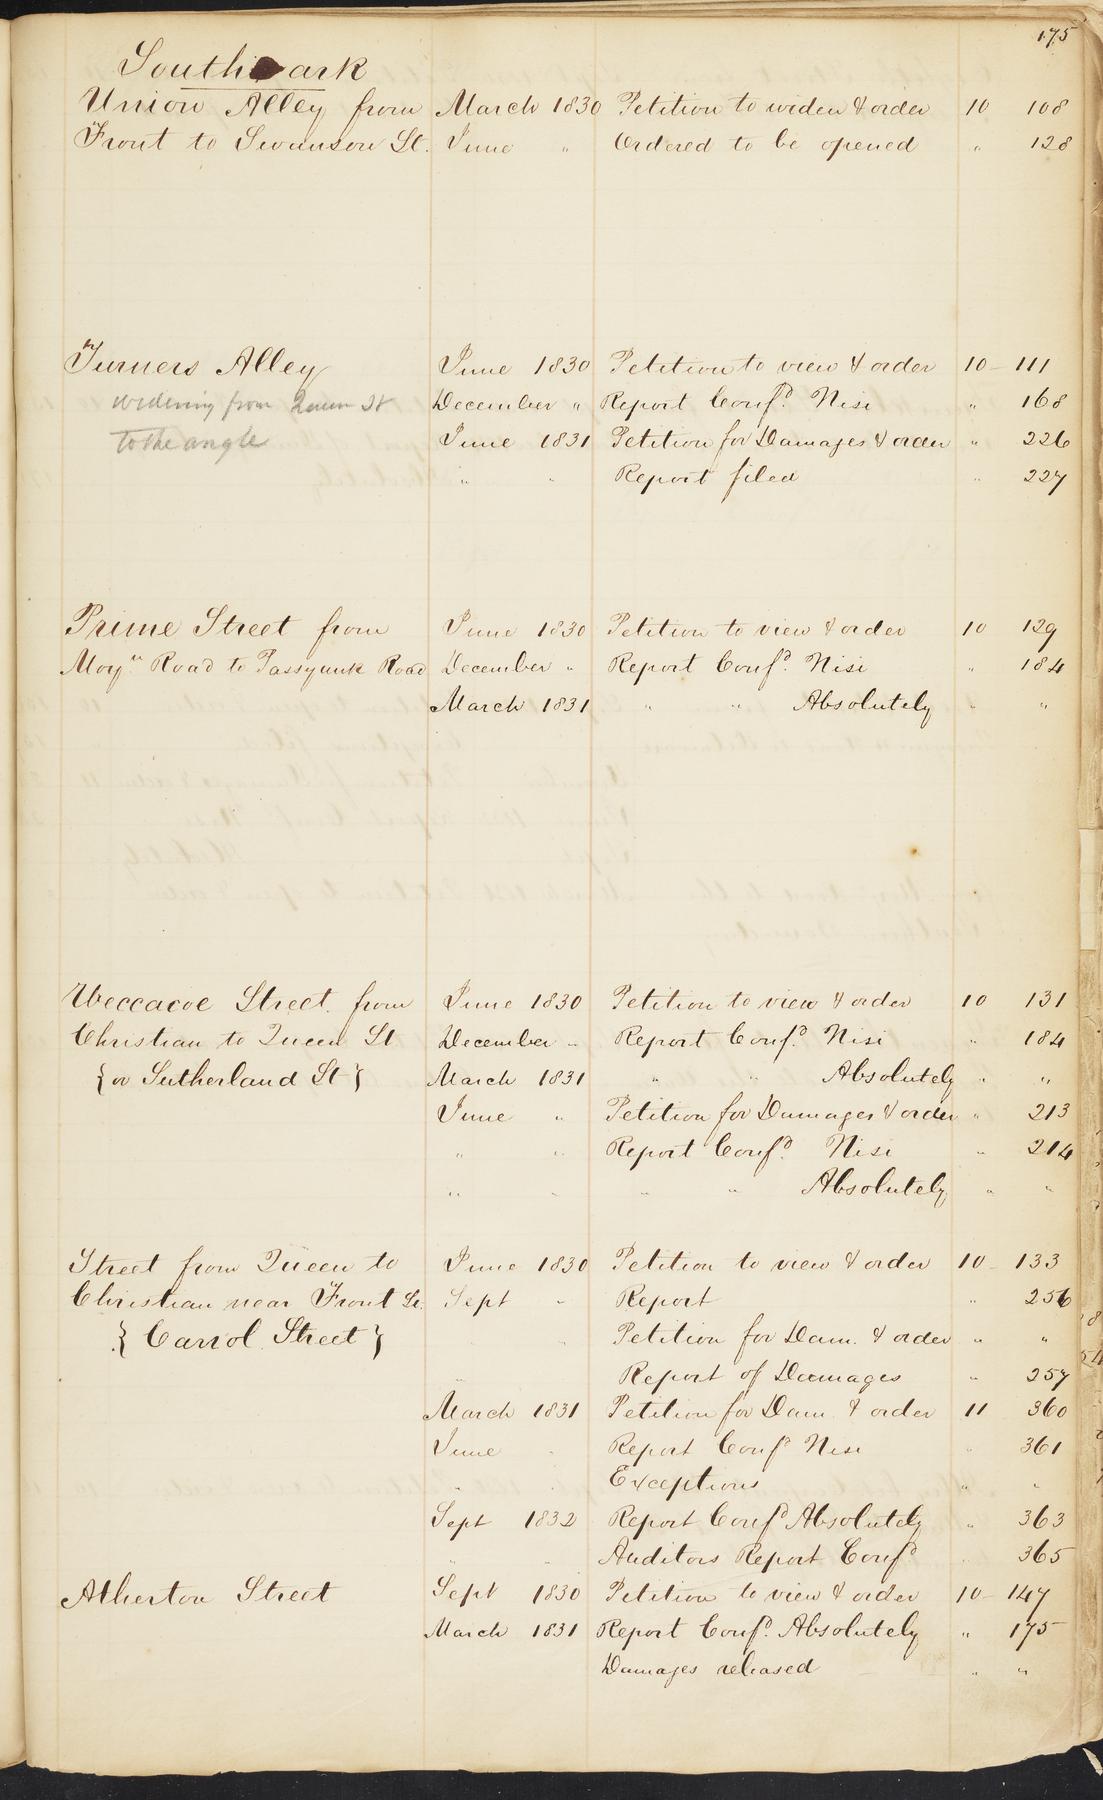 175
Southwark
Union Alley from March 1830 Petition to widen & order 10 108
Front to Swanson St. June " Ordered to be opened " 128
Turners Alley June 1830 Petition to view & order 10 - 111
widening from Queen St December " Report Confd. Nisi " 168
to the angle June 1831 Petition for Damages & order " 226
" " Report filed " 227
Prime Street from June 1830 Petition to view & order 10 129
Moyn. Road to Passyunk Road December " Report Confd. Nisi " 184
March 1831 " " Absolutely " "
Weccacoe Street from June 1830 Petition to view & order 10 131
Christian to Queen St December " Report Confd. Nisi " 184
{or Sutherland St} March 1831 " " Absolutely " "
June " Petition for Damages & order " 213
" " Report Confd. Nisi " 214
" " " " Absolutely " "
Street from Queen to June 1830 Petition to view & order 10 - 133
Christian near Front St. Sept " Report " 256
{Carrol Street} " Petition for Dam. & order " "
" Report of Damages " 257
March 1831 Petition for Dam. & order 11 360
June " Report Confd. Nisi " 361
" " Exceptions " "
Sept 1832 Report Confd Absolutely " 363
" " Auditors Report Confd " 365
Atherton Street Sept 1830 Petition to view & order 10 - 147
March 1831 Report Confd. Absolutely " 175
Damages released " "